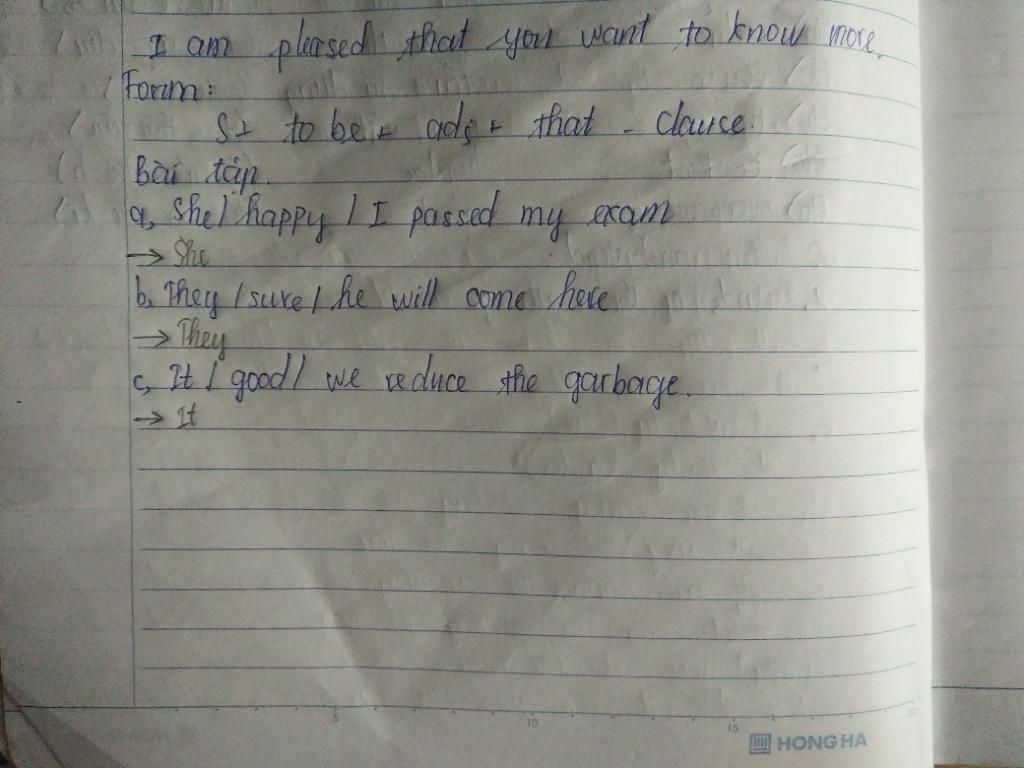 I am pleased that you want to know more.
Form:
S + to be + adj + that - clause.
Bài tập.
a, She / happy / I passed my exam
→ She
b, They / sure / he will come here
→ They
c, It / good / we reduce the garbage.
→ It
5 10 15
HONG HA